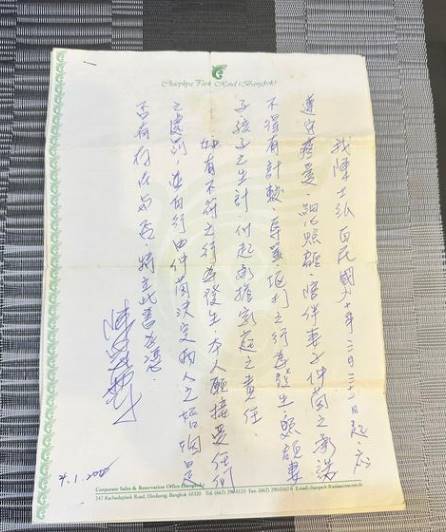 Chaophya Park Hotel (Bangkok)
我陳士紙自民國九十年三月三十日起,应
遵守疼愛、細心照顧、陪伴妻子仲茵之承諾
不得有計較、辱罵
之行為發生照顧妻
子孩子之生計,付起承擔家庭之責任
如有不符之行為發生本人願接受任何
之處罰,並自行由仲茵決定兩人之婚姻是
否有存在必要,特立此書為憑。
Corporate Sales & Reservation Office
247 Rachadapisek Road, Dindaeng, Bangkok 10320 Tel. (662)